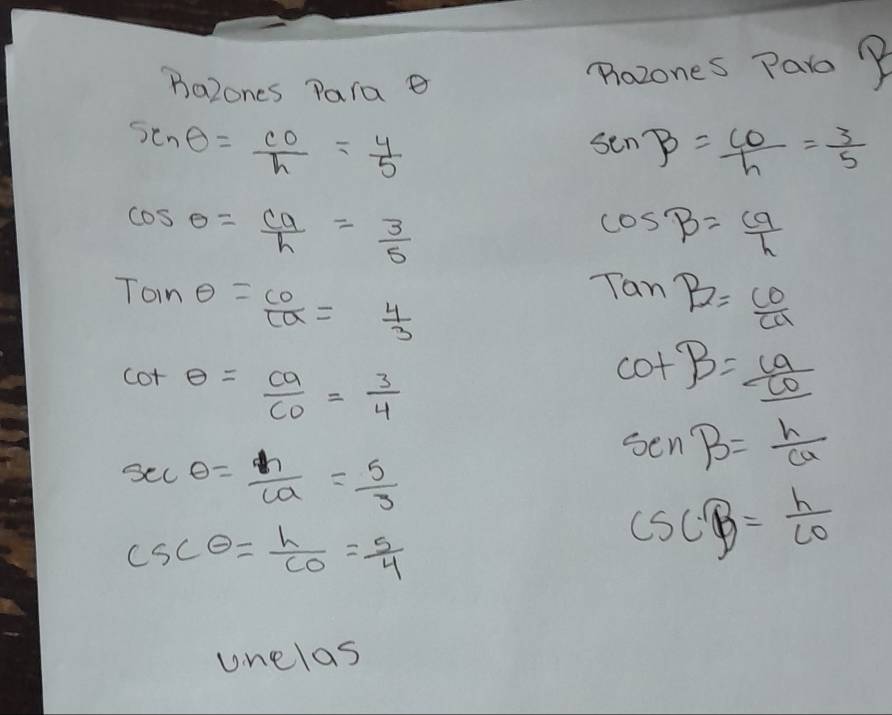 Razones Para θ
Sen θ = co/h = 4/5
cos θ = ca/h = 3/5
Tan θ = co/ca = 4/3
cot θ = ca/co = 3/4
sec θ = h/ca = 5/3
csc θ = h/co = 5/4
unelas
Razones Para β
sen β = co/h = 3/5
cos β = ca/h
Tan β = co/ca
cot β = ca/co
sen β = h/ca
csc β = h/co